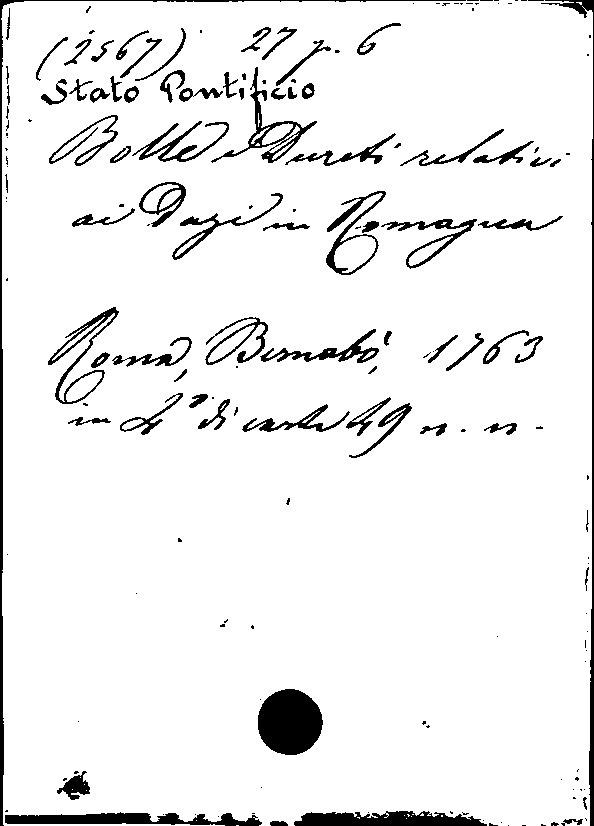 (2567) 27 p. 6
Stato Pontificio
Bolle e Decreti relativi
ai Dazi in Romagna
Roma, Bernabò, 1763
in 4° di carte 49 n. n.